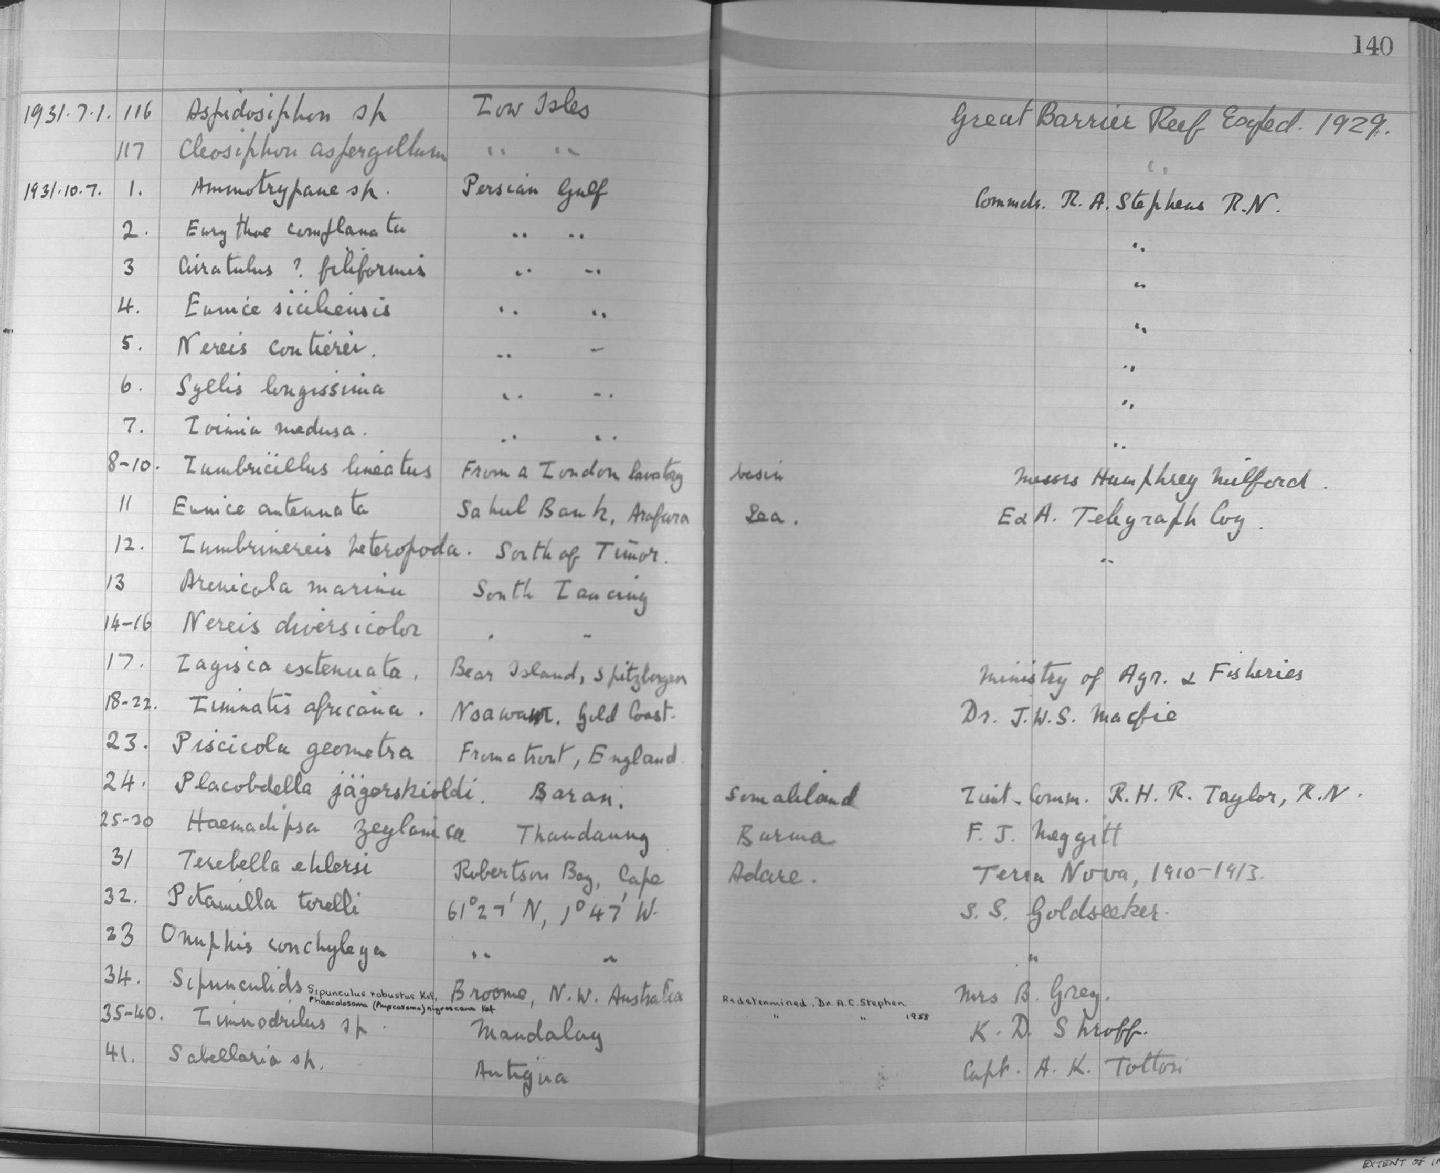 140
1931.7.1. 116 Aspidosiphon sp Low Isles Great Barrier Reef Exped. 1929.
117 Cleosiphon aspergillum " " "
1931.10.7. 1. Ammotrypane sp. Persian Gulf Commdr. R. A. Stephens R.N.
2. Eurythoe complanata " " "
3 Cirratulus ? filiformis " " "
4. Eunice siciliensis " " "
5. Nereis coutierei. " " "
6. Syllis longissima " " "
7. Loimia medusa. " " "
8-10. Lumbricillus lineatus From a London lavatory basin Messrs Humphrey Milford.
11 Eunice antennata Sahul Bank, Arafura Sea. E & A. Telegraph Coy.
12. Lumbrinereis heteropoda. South of Timor. "
13 Arenicola marina South Lancing
14-16 Nereis diversicolor " "
17. Lagisca extenuata. Bear Island, Spitzbergen Ministry of Agr. & Fisheries
18-22. Limnatis africana. Gold Coast. Dr. J.W.S. Macfie
23. Piscicola geometra From a trout, England.
24. Placobdella jägerskioldi. Baran, Somaliland Lieut. Comm. R. H. R. Taylor, R.N.
25-30 Haemadipsa zeylanica Thandaung Burma F. J. Meggitt
31 Terebella ehlersi Robertson Bay, Cape Adare. Terra Nova, 1910-1913.
32. Potamilla torelli 61°27' N, 1°47' W. S. S. Goldseeker.
33 Onuphis conchylega " " "
34. Sipunculids Sipunculus robustus Kef. Broome, N.W. Australia Redetermined. Dr. A.C. Stephen Mrs B. Grey.
Phascolosoma (Physcosoma) nigrescens Kef " " 1958
35-40. Limnodrilus sp. Mandalay K. D. Shroff.
41. Sabellaria sp. Antigua Capt. A. K. Totton
EXTENT OF